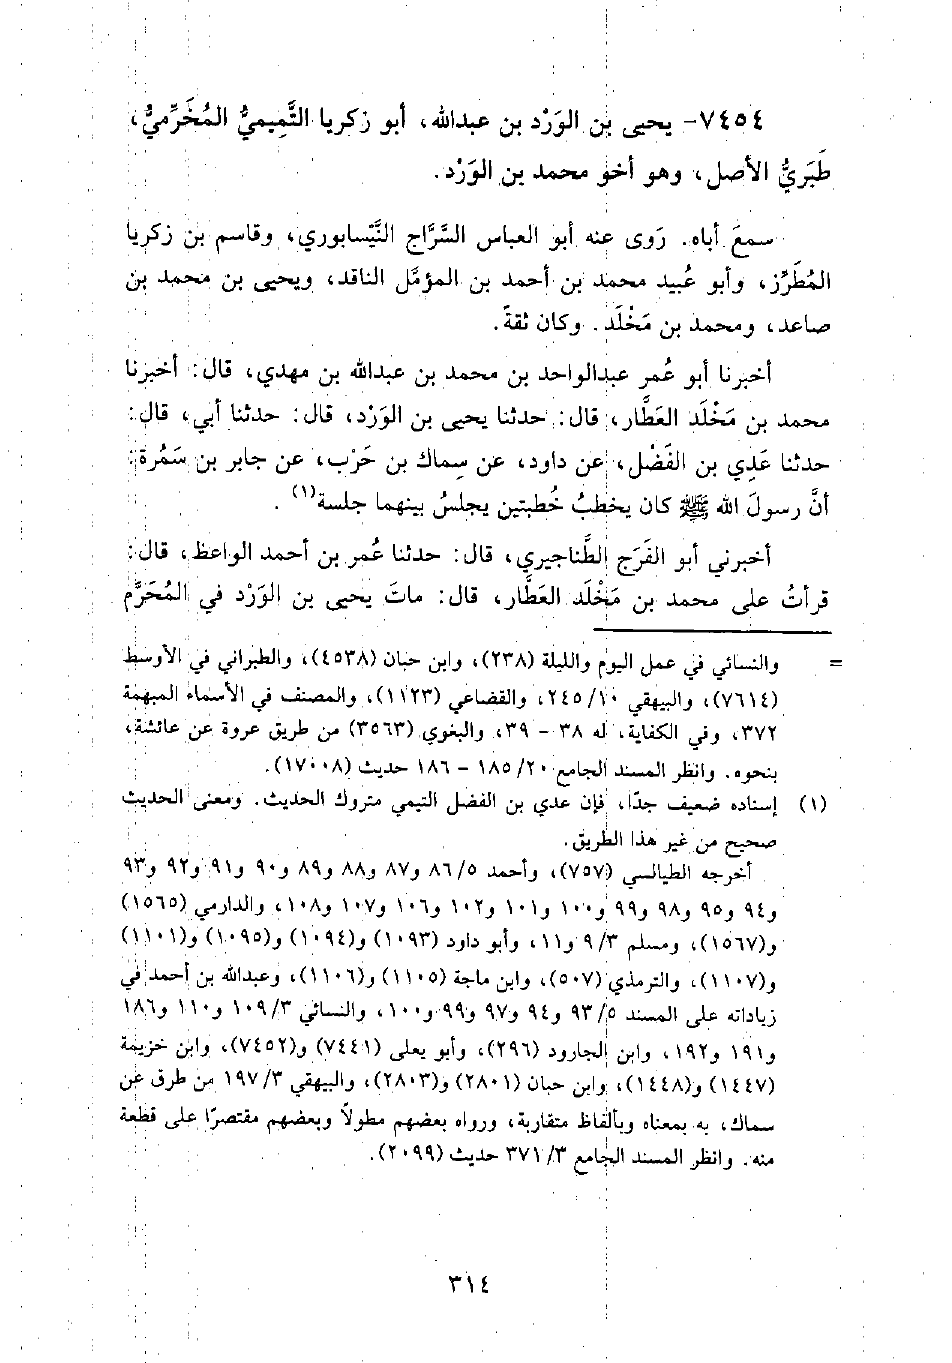 ٧٤٥٤- يحيى بن الوَرْد بن عبدالله، أبو زكريا التَّمِيميُّ المُخَرِّميُّ،
طَبَريُّ الأصل، وهو أخو محمد بن الوَرْد.
سمعَ أباه. رَوى عنه أبو العباس السَّرَّاج النَّيْسابوري، وقاسم بن زكريا
المُطَرِّز، وأبو عُبيد محمد بن أحمد بن المؤمَّل الناقد، ويحيى بن محمد بن
صاعد، ومحمد بن مَخْلَد. وكان ثقةً.
أخبرنا أبو عُمر عبدالواحد بن محمد بن عبدالله بن مهدي، قال: أخبرنا
محمد بن مَخْلَد العَطَّار، قال: حدثنا يحيى بن الوَرْد، قال: حدثنا أبي، قال:
حدثنا عَدِي بن الفَضْل، عن داود، عن سِماك بن حَرْب، عن جابر بن سَمُرة:
أنَّ رسولَ الله ﷺ كان يخطبُ خُطبتين يجلسُ بينهما جلسة(١).
أخبرني أبو الفَرَج الطَّناجيري، قال: حدثنا عُمر بن أحمد الواعظ، قال:
قرأتُ على محمد بن مَخْلَد العَطَّار، قال: ماتَ يحيى بن الوَرْد في المُحَرَّم
= والنسائي في عمل اليوم والليلة (٢٣٨)، وابن حبان (٤٥٣٨)، والطبراني في الأوسط
(٧٦١٤)، والبيهقي ١٠/ ٢٤٥، والقضاعي (١١٢٣)، والمصنف في الأسماء المبهمة
٣٧٢، وفي الكفاية، له ٣٨ - ٣٩، والبغوي (٣٥٦٣) من طريق عروة عن عائشة،
بنحوه. وانظر المسند الجامع ٢٠/ ١٨٥ - ١٨٦ حديث (١٧٠٠٨).
(١) إسناده ضعيف جدًا، فإن عدي بن الفضل التيمي متروك الحديث. ومعنى الحديث
صحيح من غير هذا الطريق.
أخرجه الطيالسي (٧٥٧)، وأحمد ٥/ ٨٦ و٨٧ و٨٨ و٨٩ و٩٠ و٩١ و٩٢ و٩٣
و٩٤ و٩٥ و٩٨ و٩٩ و١٠٠ و١٠١ و١٠٢ و١٠٦ و١٠٧ و١٠٨، والدارمي (١٥٦٥)
و(١٥٦٧)، ومسلم ٣/ ٩ و١١، وأبو داود (١٠٩٣) و(١٠٩٤) و(١٠٩٥) و(١١٠١)
و(١١٠٧)، والترمذي (٥٠٧)، وابن ماجة (١١٠٥) و(١١٠٦)، وعبدالله بن أحمد في
زياداته على المسند ٥/ ٩٣ و٩٤ و٩٧ و٩٩ و١٠٠، والنسائي ٣/ ١٠٩ و١١٠ و١٨٦
و١٩١ و١٩٢، وابن الجارود (٢٩٦)، وأبو يعلى (٧٤٤١) و(٧٤٥٢)، وابن خزيمة
(١٤٤٧) و(١٤٤٨)، وابن حبان (٢٨٠١) و(٢٨٠٣)، والبيهقي ٣/ ١٩٧ من طرق عن
سماك، به بمعناه وبألفاظ متقاربة، ورواه بعضهم مطولاً وبعضهم مقتصرًا على قطعة
منه. وانظر المسند الجامع ٣/ ٣٧١ حديث (٢٠٩٩).
٣١٤